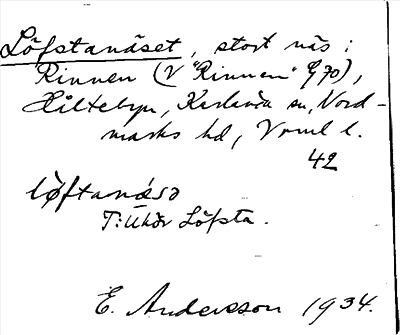 Löfstanäset, stort näs i
Rinnen (V "Rinnen" 70),
Håltebyn, Karlanda sn, Nord-
marks hd, Vrml l.
42
löftanäsə
T:llhör Löfsta.
E. Andersson 1934.